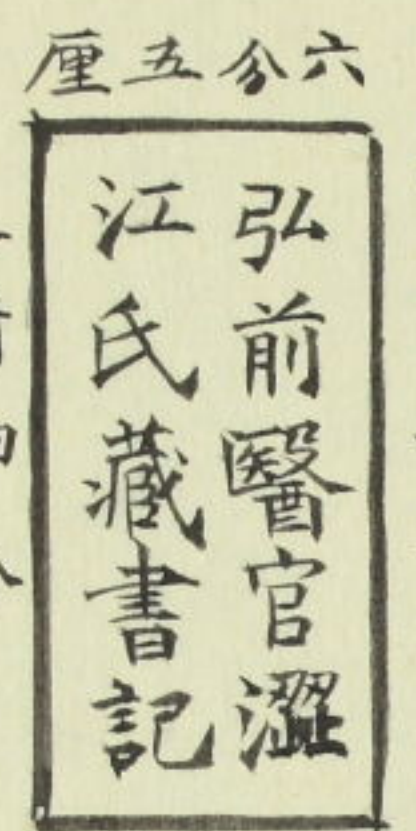 六分五厘
弘前醫官澀
江氏藏書記